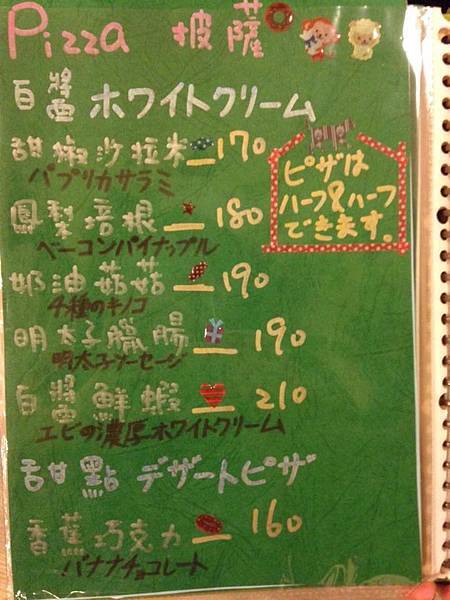 Pizza 披薩
白醬 ホワイトクリーム
甜椒沙拉米 170
パプリカサラミ
ピザは
ハーフ&ハーフ
できます。
鳳梨培根 180
ベーコンパイナップル
奶油菇菇 190
4種のキノコ
明太子臘腸 190
明太子ソーセージ
白醬鮮蝦 210
エビの濃厚ホワイトクリーム
甜點 デザートピザ
香蕉巧克力 160
バナナチョコレート